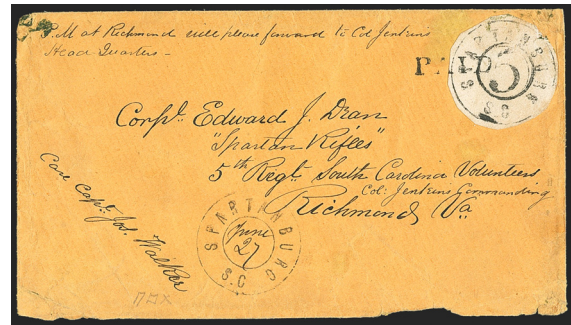 P.M at Richmond will please forward to Col Jenkins
Head Quarters -
PAID
SPARTANBURG
5
S.C
Corpl. Edward J. Dean
"Spartan Rifles"
5th Regt. South Carolina Volunteers
Col: Jenkins Commanding
Richmond, Va
Care Capt. Jos. Walker
SPARTANBURG
June
27
S.C